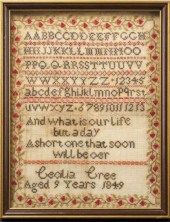 AABBCCDDEEFFGGH
HIIJJKKLLMMNNOO
PPQQRRSSTTUUVV
WWXXYYZZ12345
abcdefghijklmnopqrst
uvwxyz
And what is our life
but a day
A short one that soon
will be oer
Cecilia Cree
Aged 9 Years 1849